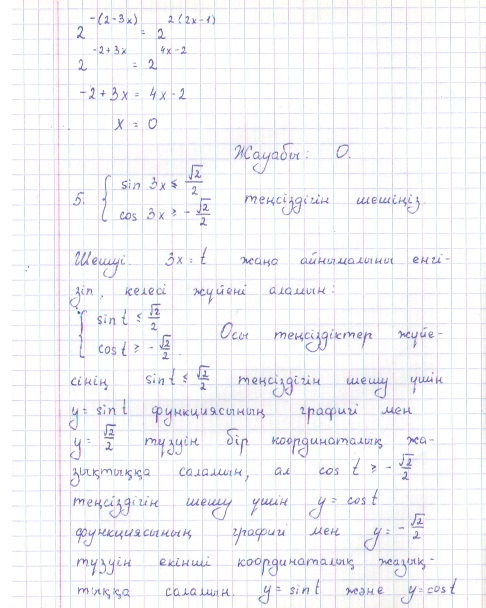 2^{-(2-3x)} = 2^{2(2x-1)}
2^{-2+3x} = 2^{4x-2}
-2+3x = 4x-2
x = 0
Жауабы: 0.
5. { sin 3x ≤ √2/2
cos 3x ≥ -√2/2 теңсіздігін шешіңіз
Шешуі. 3x = t жаңа айнымалыны енгі-
зіп, келесі жүйені аламын:
{ sin t ≤ √2/2
cos t ≥ -√2/2. Осы теңсіздіктер жүйе-
сінің sin t ≤ √2/2 теңсіздігін шешу үшін
y = sin t функциясының графигі мен
y = √2/2 түзуін бір координаталық жа-
зықтыққа саламын, ал cos t ≥ -√2/2
теңсіздігін шешу үшін y = cos t
функциясының графигі мен y = -√2/2
түзуін екінші координаталық жазық-
тыққа саламын. y = sin t және y = cos t